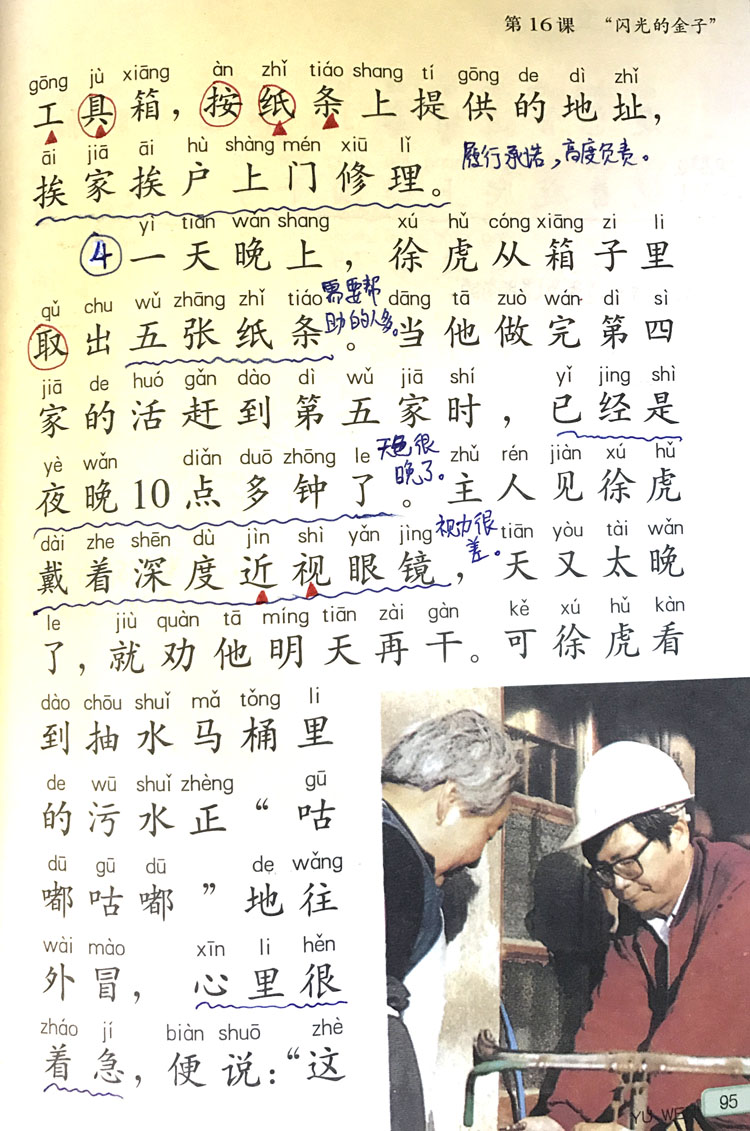 第16课 “闪光的金子”
gōng jù xiāng àn zhǐ tiáo shang tí gōng de dì zhǐ
工具箱，按纸条上提供的地址，
āi jiā āi hù shàng mén xiū lǐ
挨家挨户上门修理。
履行承诺，高度负责。
yì tiān wǎn shang xú hǔ cóng xiāng zi li
④一天晚上，徐虎从箱子里
qǔ chu wǔ zhāng zhǐ tiáo dāng tā zuò wán dì sì
需要帮
助的人多。
取出五张纸条。当他做完第四
jiā de huó gǎn dào dì wǔ jiā shí yǐ jing shì
家的活赶到第五家时，已经是
yè wǎn diǎn duō zhōng le zhǔ rén jiàn xú hǔ
天色很
晚了。
夜晚10点多钟了。主人见徐虎
dài zhe shēn dù jìn shi yǎn jìng tiān yòu tài wǎn
视力很
差。
戴着深度近视眼镜，天又太晚
le jiù quàn tā míng tiān zài gàn kě xú hǔ kàn
了，就劝他明天再干。可徐虎看
dào chōu shuǐ mǎ tǒng li
到抽水马桶里
de wū shuǐ zhèng gū
的污水正“咕
dū gū dū de wǎng
嘟咕嘟”地往
wài mào xīn li hěn
外冒，心里很
zháo jí biàn shuō zhè
着急，便说：“这
YU WEN 95